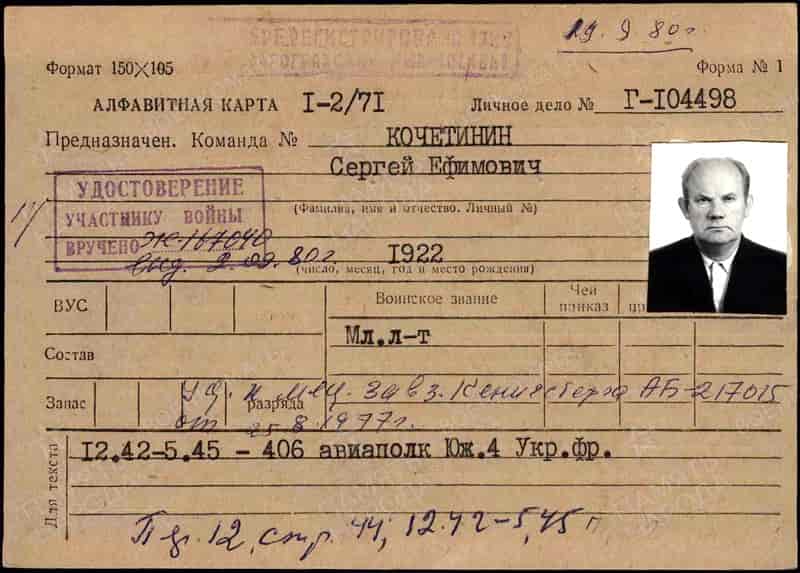 19.9.80г.
Формат 150×105
Форма № 1
АЛФАВИТНАЯ КАРТА I-2/7I
Личное дело № Г-I04498
Предназначен. Команда № КОЧЕТИНИН
Сергей Ефимович
УДОСТОВЕРЕНИЕ
УЧАСТНИКУ ВОЙНЫ
ВРУЧЕНО Ж-167040
(Фамилия, имя и отчество. Личный №)
выд. 2.09.80г.
I922
(число, месяц, год и место рождения)
ВУС
Воинское звание
Чей приказ
Мл.л-т
Состав
Запас
разряда
Уд. к мед. за вз. Кенигсберга АБ-217015
от 25.8.1977г.
Для текста
I2.42-5.45 - 406 авиаполк Юж.4 Укр.фр.
П д. 12, стр. 44, 12.42-5,45 г